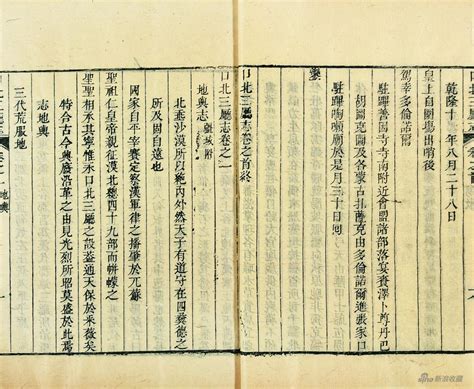 乾隆十 年八月二十八日
皇上自圍塲出哨後
駕幸多倫諾爾
駐蹕善因寺寺南附近會盟諸部落宴賚澤卜尊丹巴
胡圖克圖及各蒙古扎薩克由多倫諾爾進張家口
駐蹕 喇廟於是月三十日回
鑾
口北三廳志卷之首終
口北三廳志卷之一
地輿志 疆域附
北塞沙漠所以 內外然天子有道守在四夷德之
所及固自遠也
國家自平 定 漢軍律之播肇於元
聖祖仁皇帝親征漠北總四十九部而帡幪之
聖聖相承其寧惟永口北三廳之設蓋通天保於采薇矣
特合古今興廢沿革之由見光烈所昭莫盛於此焉
志地輿
三代荒服地
地輿
sina 新浪收藏